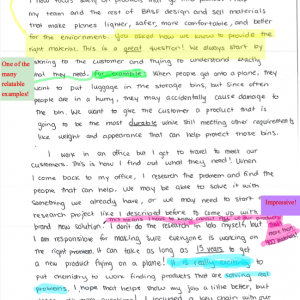 my team and the rest of BASF design and sell materials
that make planes lighter, safer, more comfortable, and better
for the environment. You asked how we know to provide the
right material. This is a great question! We always start by
One of the
many
relatable
examples!
to the customer and trying to understand exactly
what they need. For example: When people go onto a plane, they
want to put luggage in the storage bins, but since often
people are in a hurry, they may accidentally cause damage to
the bin. We want to give the customer a product that is
going to be the most durable while still meeting other requirements
like weight and appearance that can help protect those bins.
I work in an office but I get to travel to meet our
customers. This is how I find out what they need! When
I come back to my office, I research the problem and find the
people that can help. We may be able to solve it with
something we already have, or we may need to start a
Impressive!
research project like I described before to come up with a
brand new solution. I don't do the research in lab myself, but
I am responsible for making sure everyone is working on
the right problem. It can take as long as 15 years to get
a new product flying on a plane! It is really exciting to
put chemistry to work finding products that are solving real
problems. I hope that helps show you a little better, but